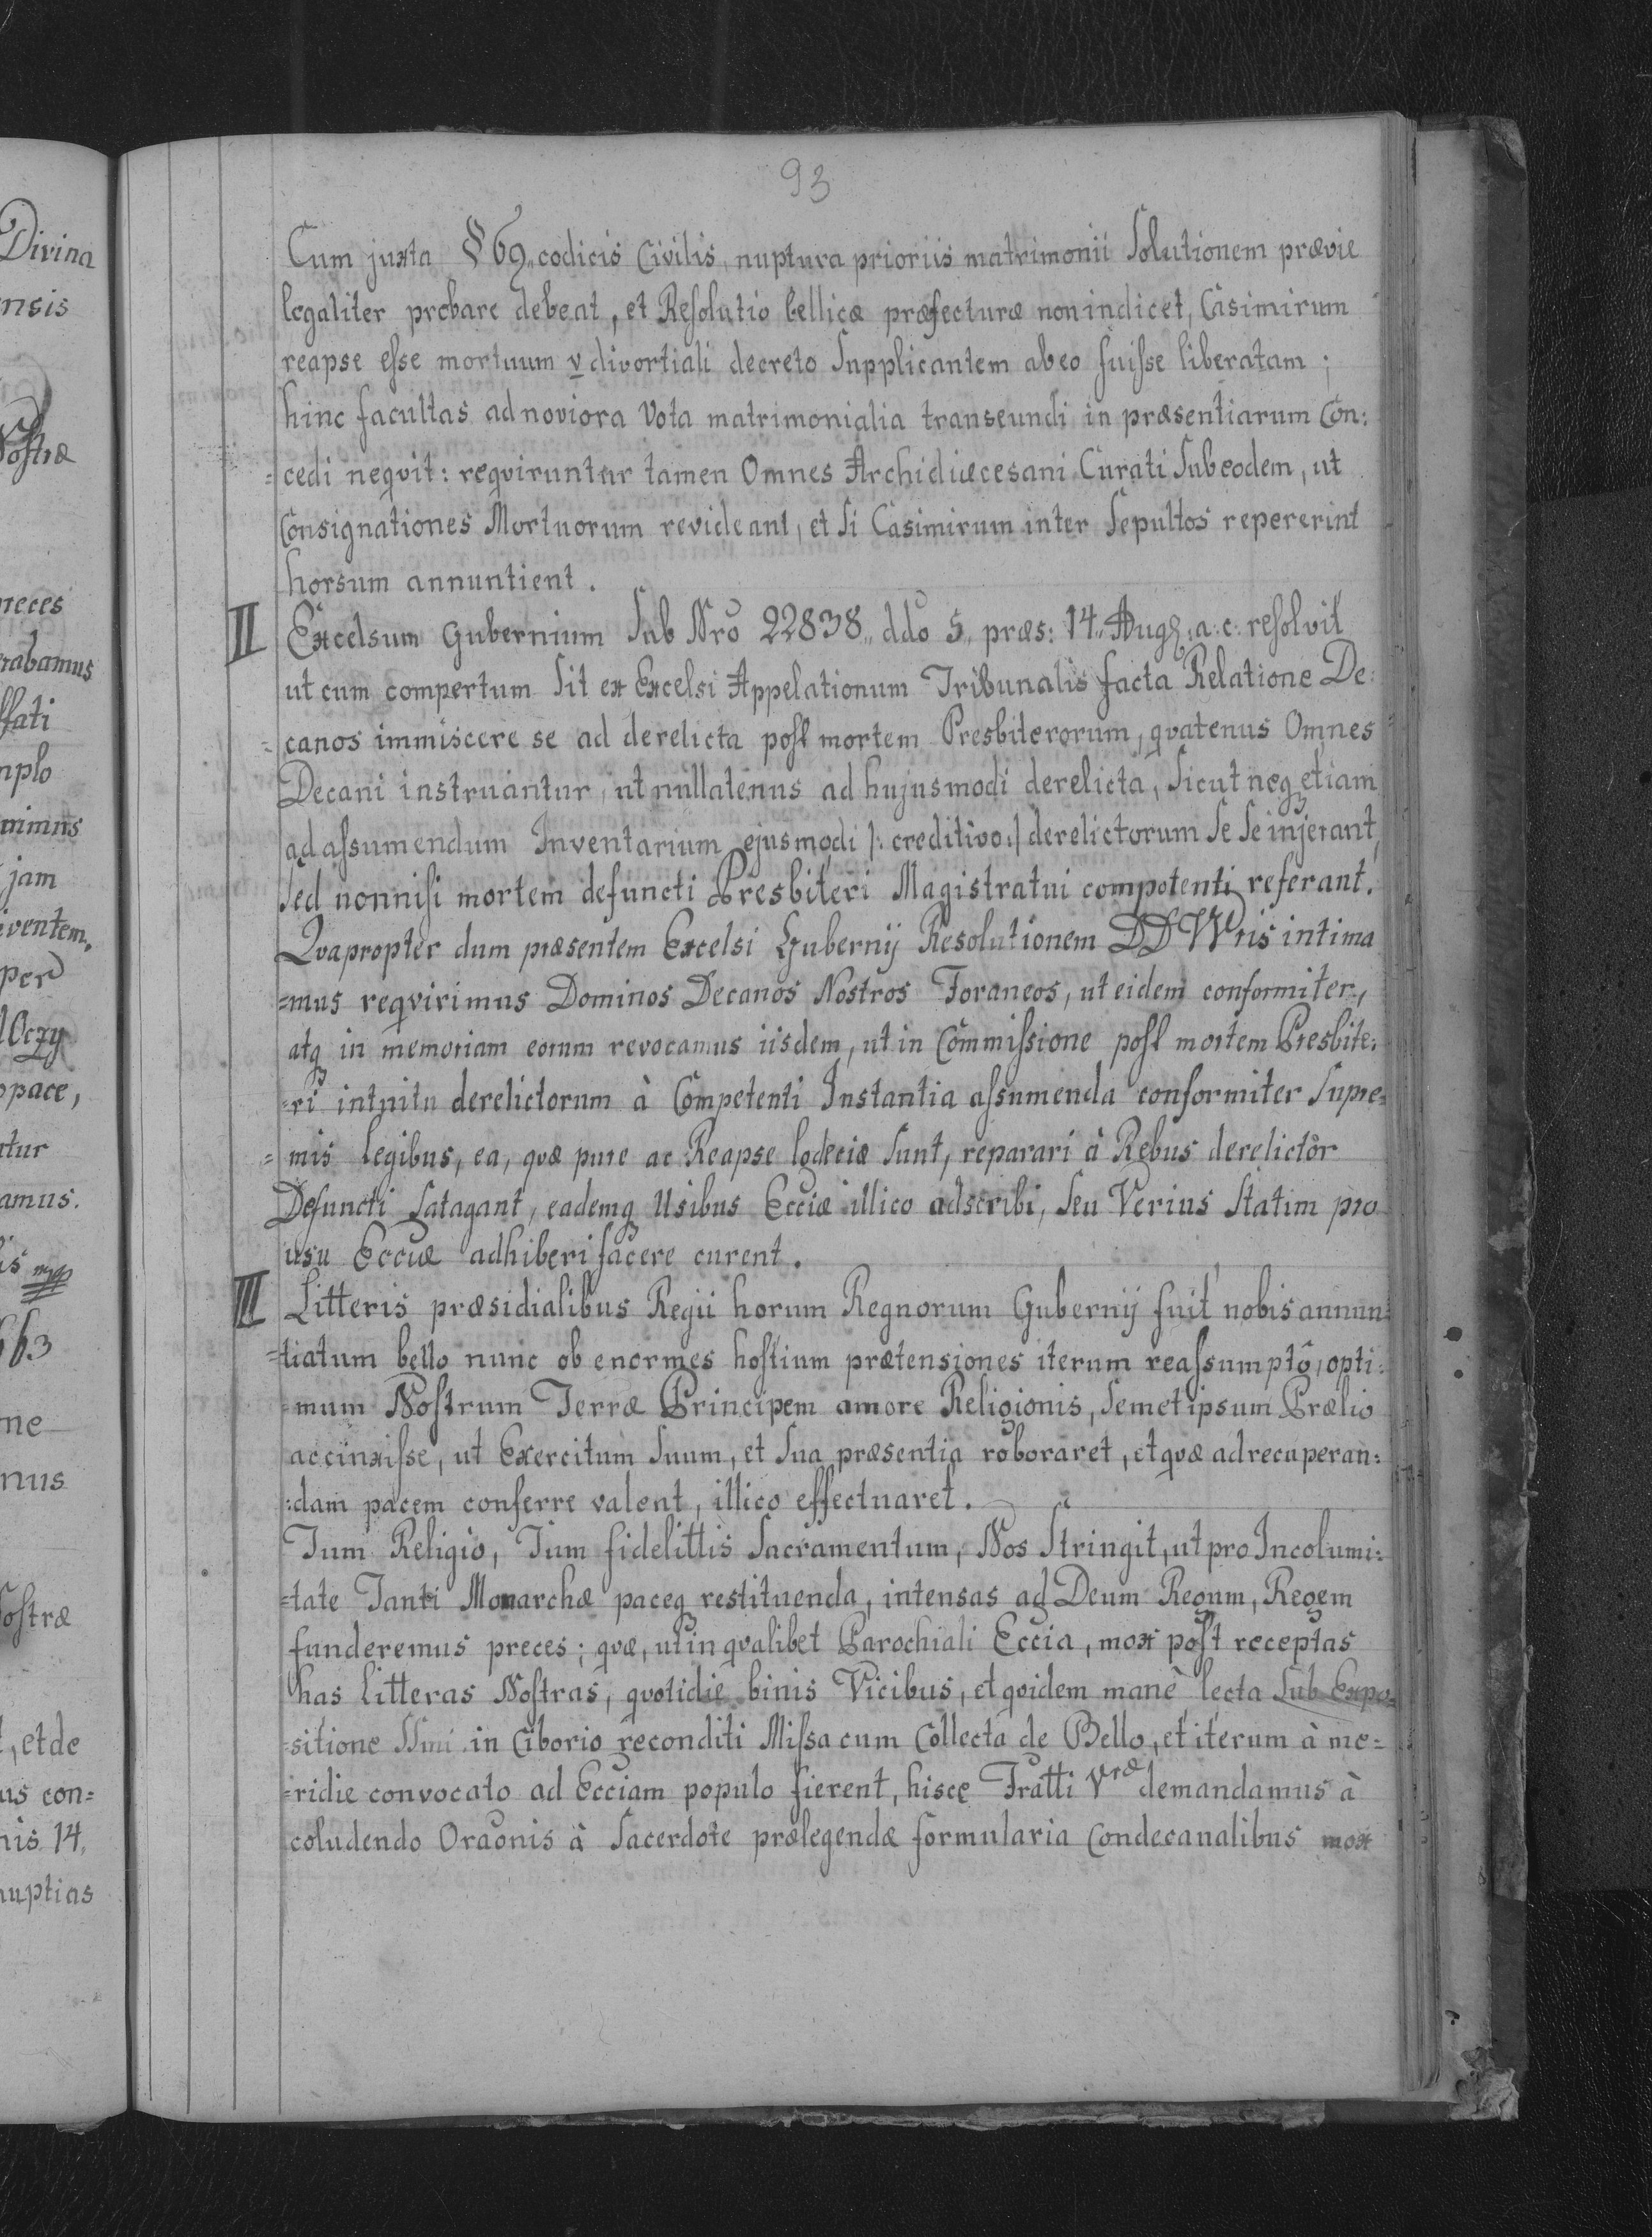 93
Divina
nsis
Nostræ
preces
rabamus
ffati
mplo
nimus
jam
iventem
per
Oczy
pace,
tur
amus.
is mpp
663
ne
nus
Nostræ
t, et de
us con=
nis 14.
nuptias
Cum juxta § 69,, codicis Civilis, nuptura prioris matrimonii Solutionem prævie
legaliter probare debeat, et Resolutio bellicæ præfecturæ non indicet, Casimirum
reapse esse mortuum v divortiali decreto Supplicantem ab eo fuisse liberatam;
hinc facultas ad noviora Vota matrimonialia transeundi in præsentiarum Con:
=cedi neqvit: reqviruntur tamen Omnes Archidiæcesani Curati Sub eodem, ut
Consignationes Mortuorum revideant, et Si Casimirum inter Sepultos repererint
horsum annuntient.
II Excelsum Gubernium Sub Nro 22838,, ddo 5,, præs: 14,, Aug: a: c: resolvit
ut cum compertum Sit ex Excelsi Appelationum Tribunalis facta Relatione De:
=canos immiscere se ad derelicta post mortem Presbiterorum, qvatenus Omnes
Decani instruantur, ut nullatenus ad hujusmodi derelicta, Sicut neq etiam
ad assumendum Inventarium ejusmodi |: creditivo:| derelictorum Se Se injerant,
Sed nonnisi mortem defuncti Presbiteri Magistratui competenti referant.
Qvapropter dum præsentem Excelsi Gubernij Resolutionem DD Vris intima
=mus reqvirimus Dominos Decanos Nostros Foraneos, ut eidem conformiter,
atq in memoriam eorum revocamus iisdem, ut in Commissione post mortem Presbite:
=ri intuitu derelictorum à Competenti Instantia assumenda conformiter Supre=
=mis legibus, ea, qvæ pure ac Reapse Sunt, reparari à Rebus derelictõr
Defuncti Satagant, eademq Usibus Ecciæ illico adscribi, Seu Verius Statim pro
usu Ecciæ adhiberi facere curent.
III Litteris præsidialibus Regii horum Regnorum Gubernij fuit nobis annun=
=tiatum bello nunc ob enormes hostium prætensiones iterum reassumptô, opti:
=mum Nostrum Terræ Principem amore Religionis, Semet ipsum Prælio
accinxisse, ut Exercitum Suum, et Sua præsentia roboraret, et qvæ ad recuperan:
:dam pacem conferre valent, illico effectuaret.
Tum Religio, Tum fidelittis Sacramentum, Nos Stringit, ut pro Incolumi:
=tate Tanti Monarchæ paceq restituenda, intensas ad Deum Regum, Regem
funderemus preces; qvæ, ut in qvalibet Parochiali Eccia, mox post receptas
has Litteras Nostras, qvotidie binis Vicibus, et qvidem manè lecta Sub Expo=
=sitione SSmi in Ciborio reconditi Missa cum Collecta de Bello, et iterum à me=
=ridie convocato ad Ecciam populo fierent, hisce Fratti Vræ demandamus à
coludendo Oraõnis à Sacerdote prælegendæ formularia Condecanalibus mox